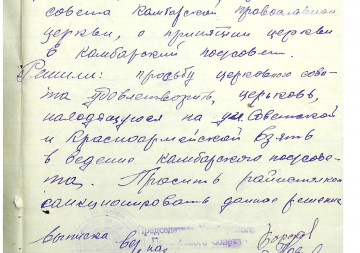 совета Камбарской православной
церкви, о принятии церкви
в Камбарский поссовет.
Решили: просьбу церковного сове-
та удовлетворить, церковь,
находящуюся на ул Советской
и Красноармейской взять
в ведение Камбарского поссове-
та. Просить райисполком
санкционировать данное решение
выписка верна: